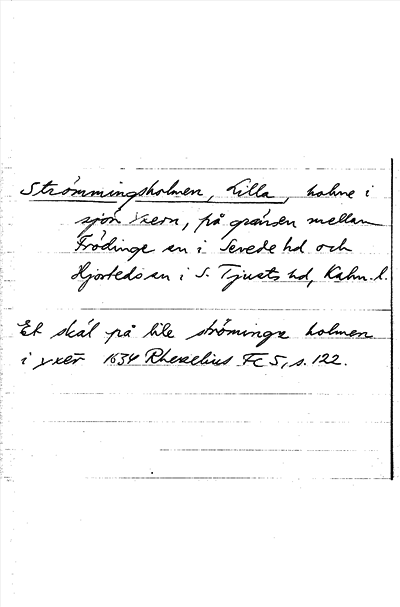 Strömmingsholmen, Lilla, holme i
sjön Yxern, på gränsen mellan
Frödinge sn i Sevede hd och
Hjorteds sn i S. Tjusts hd, Kalm. l.
Et skäl på lile ströminge holmen
i yxer 1634 Rhezelius Fc 5, s. 122.